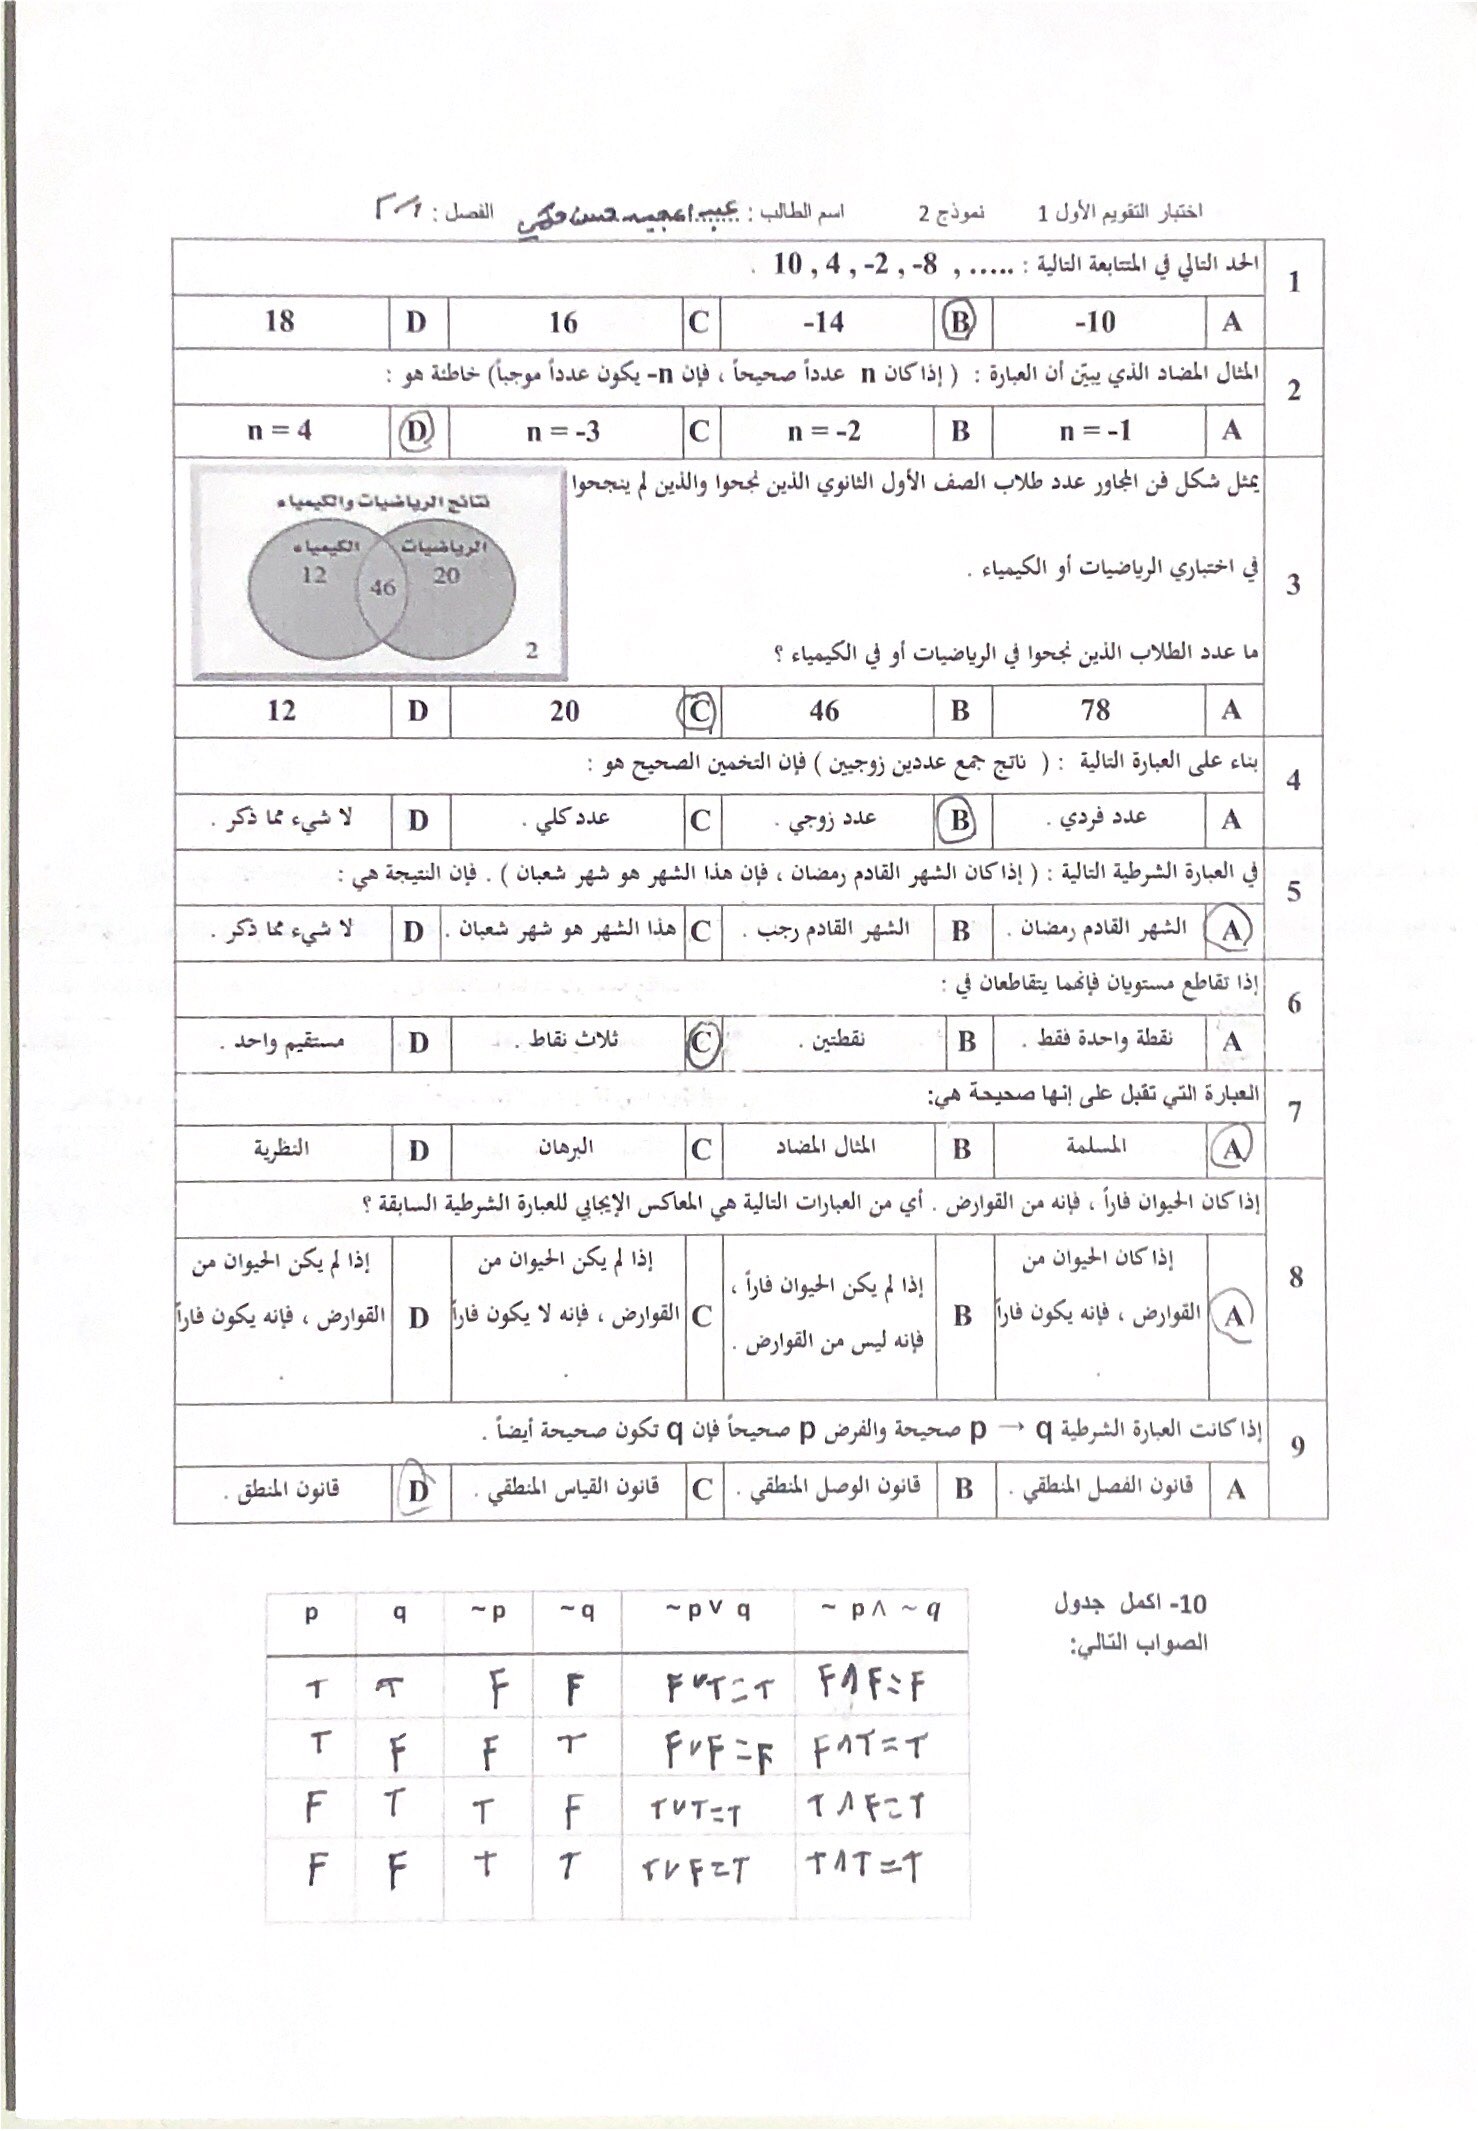 اختبار التقويم الأول 1 نموذج 2 اسم الطالب : عبد المجيد حسن حكمي الفصل : 2/1
1 الحد التالي في المتتابعة التالية : 10 , 4 , -2 , -8 , ..... .
A -10 B -14 C 16 D 18
2 المثال المضاد الذي يبيّن أن العبارة : ( إذا كان n عدداً صحيحاً ، فإن n- يكون عدداً موجباً) خاطئة هو :
A n = -1 B n = -2 C n = -3 D n = 4
3 يمثل شكل فن المجاور عدد طلاب الصف الأول الثانوي الذين نجحوا والذين لم ينجحوا
في اختباري الرياضيات أو الكيمياء .
ما عدد الطلاب الذين نجحوا في الرياضيات أو في الكيمياء ؟
نتائج الرياضيات والكيمياء
الرياضيات الكيمياء
20 46 12
2
A 78 B 46 C 20 D 12
4 بناء على العبارة التالية : ( ناتج جمع عددين زوجيين ) فإن التخمين الصحيح هو :
A عدد فردي . B عدد زوجي . C عدد كلي . D لا شيء مما ذكر .
5 في العبارة الشرطية التالية : ( إذا كان الشهر القادم رمضان ، فإن هذا الشهر هو شهر شعبان ) . فإن النتيجة هي :
A الشهر القادم رمضان . B الشهر القادم رجب . C هذا الشهر هو شهر شعبان . D لا شيء مما ذكر .
6 إذا تقاطع مستويان فإنهما يتقاطعان في :
A نقطة واحدة فقط . B نقطتين . C ثلاث نقاط . D مستقيم واحد .
7 العبارة التي تقبل على إنها صحيحة هي:
A المسلمة B المثال المضاد C البرهان D النظرية
8 إذا كان الحيوان فاراً ، فإنه من القوارض . أي من العبارات التالية هي المعاكس الإيجابي للعبارة الشرطية السابقة ؟
A إذا كان الحيوان من القوارض ، فإنه يكون فاراً . B إذا لم يكن الحيوان فاراً ، فإنه ليس من القوارض . C إذا لم يكن الحيوان من القوارض ، فإنه لا يكون فاراً . D إذا لم يكن الحيوان من القوارض ، فإنه يكون فاراً .
9 إذا كانت العبارة الشرطية p → q صحيحة والفرض p صحيحاً فإن q تكون صحيحة أيضاً .
A قانون الفصل المنطقي . B قانون الوصل المنطقي . C قانون القياس المنطقي . D قانون المنطق .
10- اكمل جدول
الصواب التالي:
p q ~p ~q ~p∨ q ~ p∧ ~q
T T F F F∨T=T F∧F=F
T F F T F∨F=F F∧T=T
F T T F T∨T=T T∧F=T
F F T T T∨F=T T∧T=T